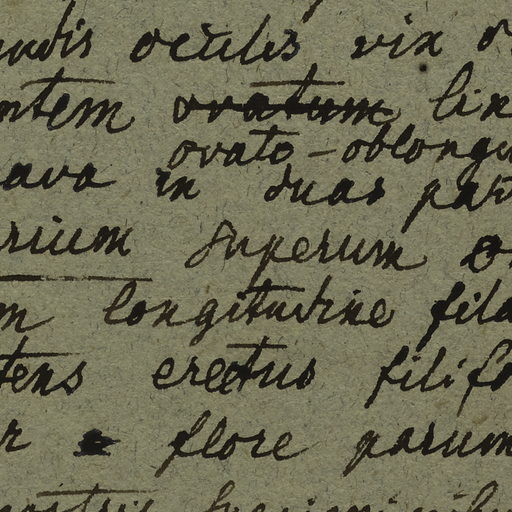 nudis oculis vix
ntem ovatum lin
ovato-oblongu
ava in duas part
rium superum
m longitudine fila
tens erectus filifo
r flore parum